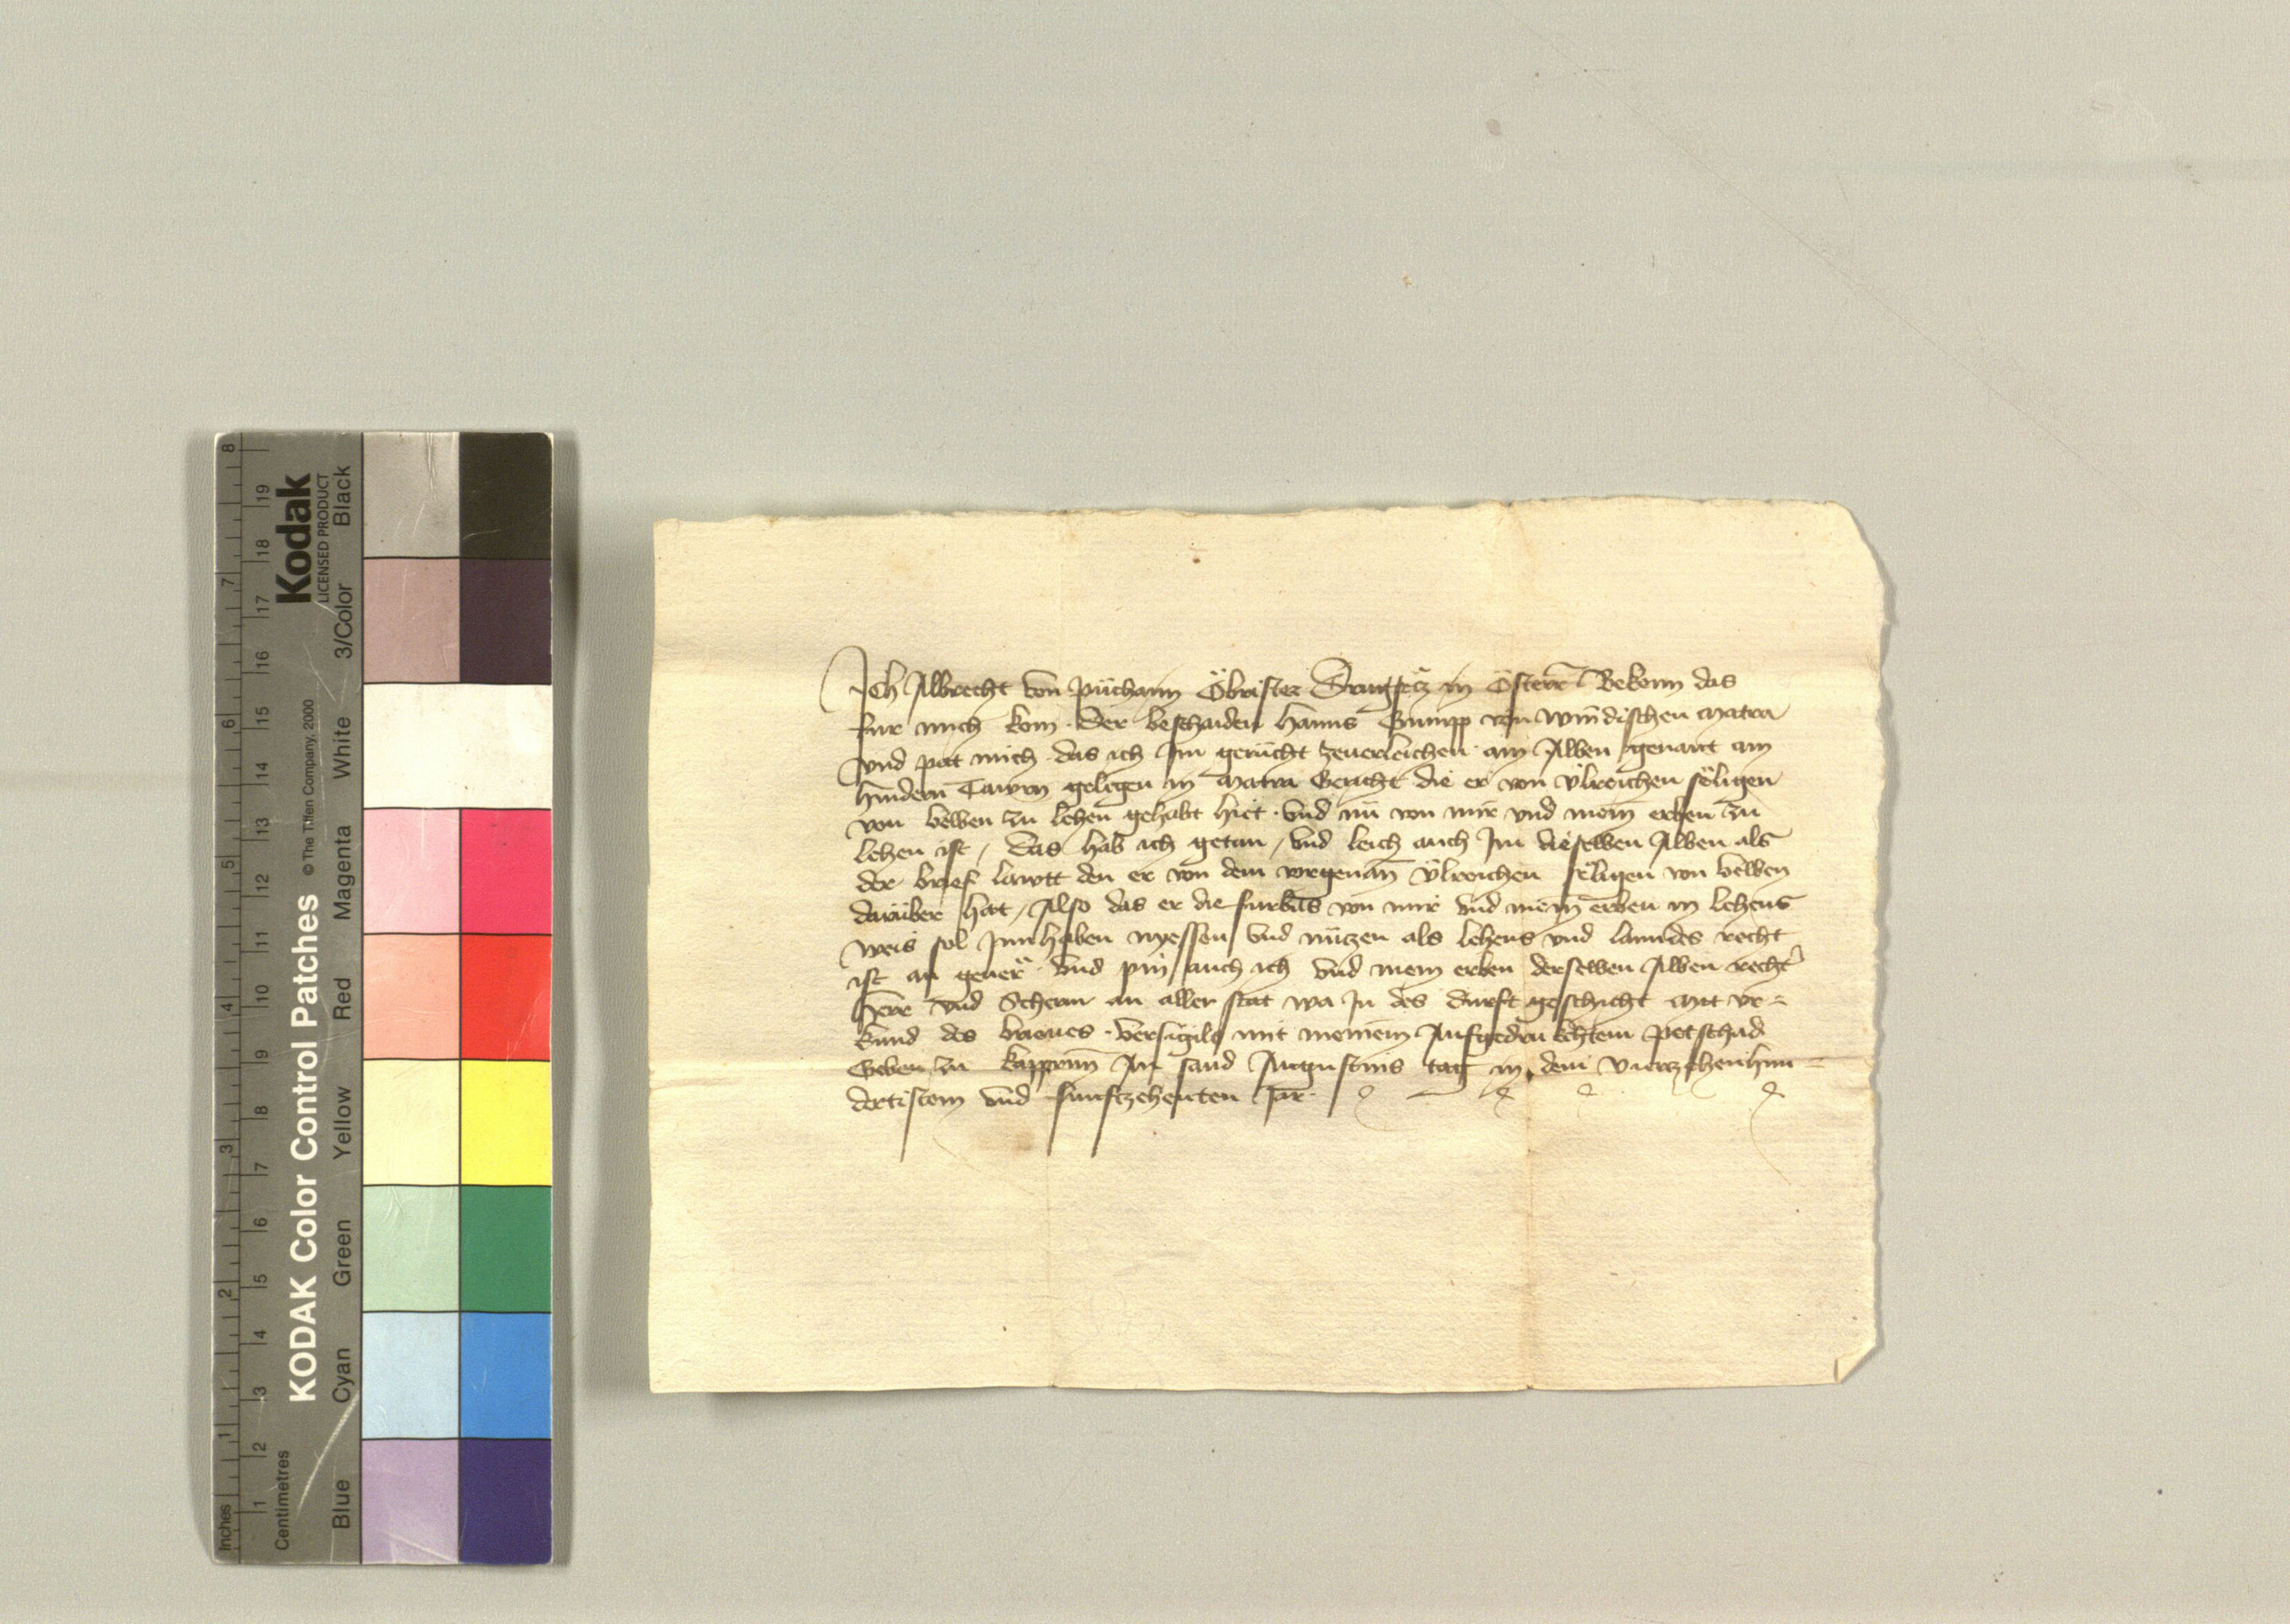 Ich Albrecht von Püchaim Öbrister Drugsecz in Österr̄ Bekenn das
fur mich kom · Der beschaiden Hanns Gumpp von Windischen Matra
und pat mich das ich Im gerücht zeuerleichen ain Alben genant am
hindern Tawrn gelegen in Matra Gericht die er von Ulreichen sëligen
von velben zu lehen gehabt hiet · vnd nu von mir vnd mein̄ erben zu
lehen ist / Das hab ich getan / vnd leich auch Im dieselben Alben als
der brief lawtt den er von dem vorgenan̄ Ulreichen sëligen von velben
darüber hat / Also das er die furbas von mir vnd mein̄ erben in lehens
weis sol Innhaben nyessen vnd nüczen als lehens vnd lanndes recht
ist an geuer · vnd pin auch ich vnd mein erben derselben Alben recht
Herr vnd Scherm an aller stat wa In des durft geschicht Mit vr=
kund des brieues · versigilt mit meinem Aufgedrukchtem petschad
Geben zu kapprun̄ An sand Augustins tag in dem vierzehenhun=
dertistem vnd funfzehenten Jar ·
KODAK Color Control Patches © The Tiffen Company, 2000
Kodak
LICENSED PRODUCT
Blue Cyan Green Yellow Red Magenta White 3/Color Black
Inches 1 2 3 4 5 6 7 8
Centimetres 1 2 3 4 5 6 7 8 9 10 11 12 13 14 15 16 17 18 19